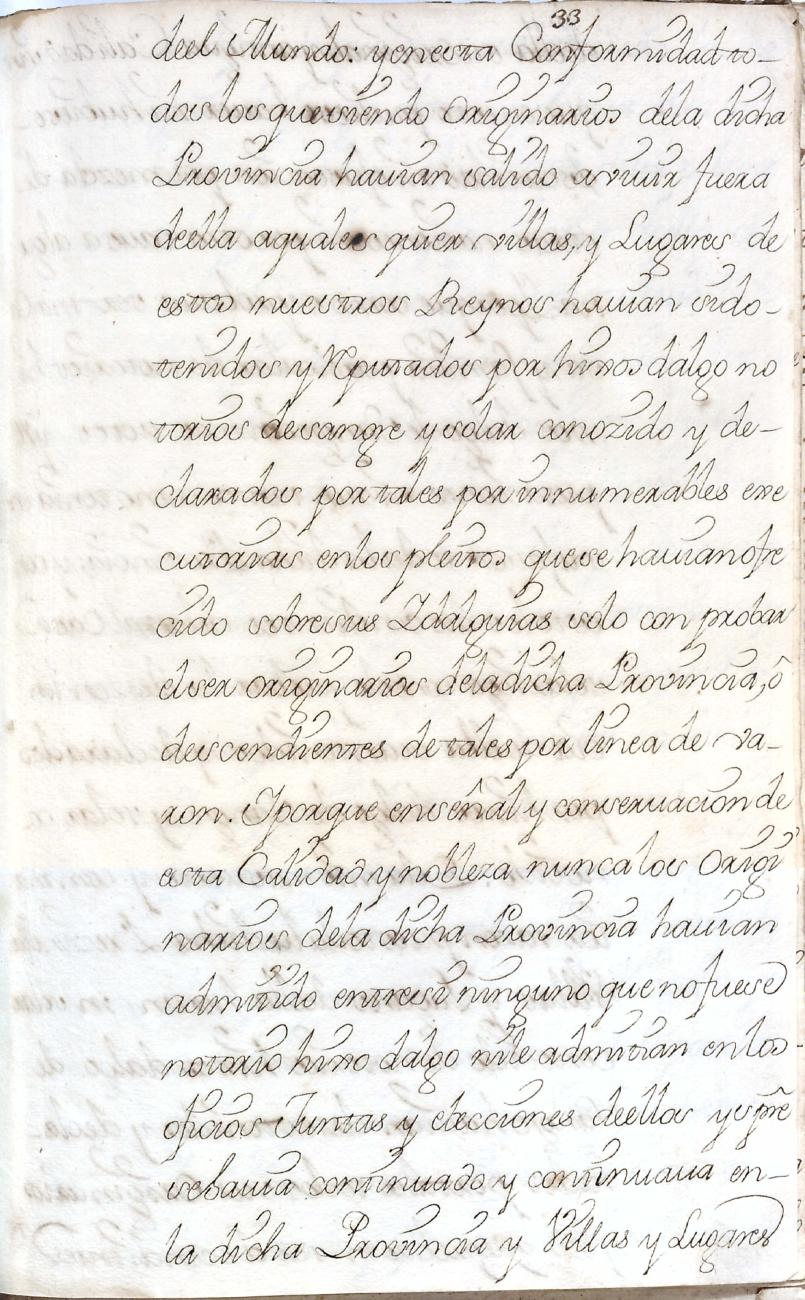 33
deel Mundo: y en esta Conformidad to-
dos los que siendo Originarios dela dicha
Provincia havian salido a vivir fuera
deella aquales quier villas, y Lugares de
estos nuestros Reynos havian sido-
tenidos y Rputados por hixos dalgo no
torios desangre ysolar conozido y de-
clarados por tales por innumerables exe
cutorias enlos pleitos quese havian ofre
cido sobresus Idalguias solo con probar
elser originarios deladicha Provincia, ô
descendientes de tales por linea de va-
ron. Y porque enseñal y conservacion de
esta Calidad y nobleza nunca los Origi
narios dela dicha Provincia havian
admitido entresi ninguno que no fuese
notorio hixo dalgo nile admitian en los-
oficios Juntas y elecciones deellos y spre
sehavia continuado y continuava en-
la dicha Provincia y Villas y Lugares